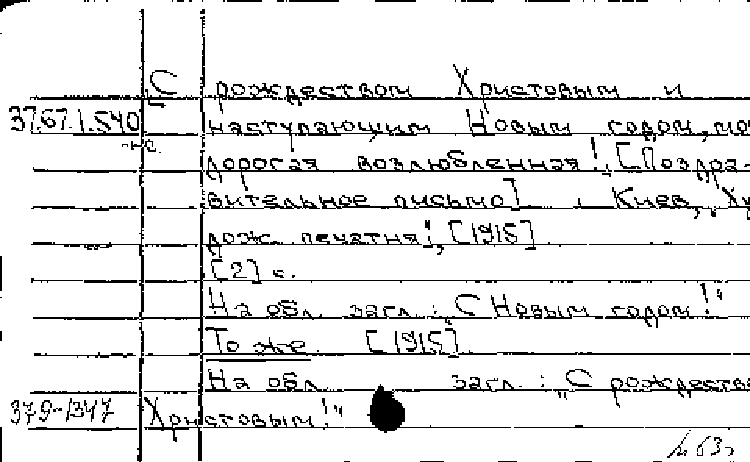 С рождеством Христовым и
37.67.1.540 наступающим Новым годом, мо
дорогая возлюбленная! [Поздра-
вительное письмо]. Киев, Ху
дож. печатня!, [1915]
[2] с.
На обл. загл.: „С Новым годом!"
То же [1915]
На обл. загл.: „С рождеств
379-1347 Христовым!"